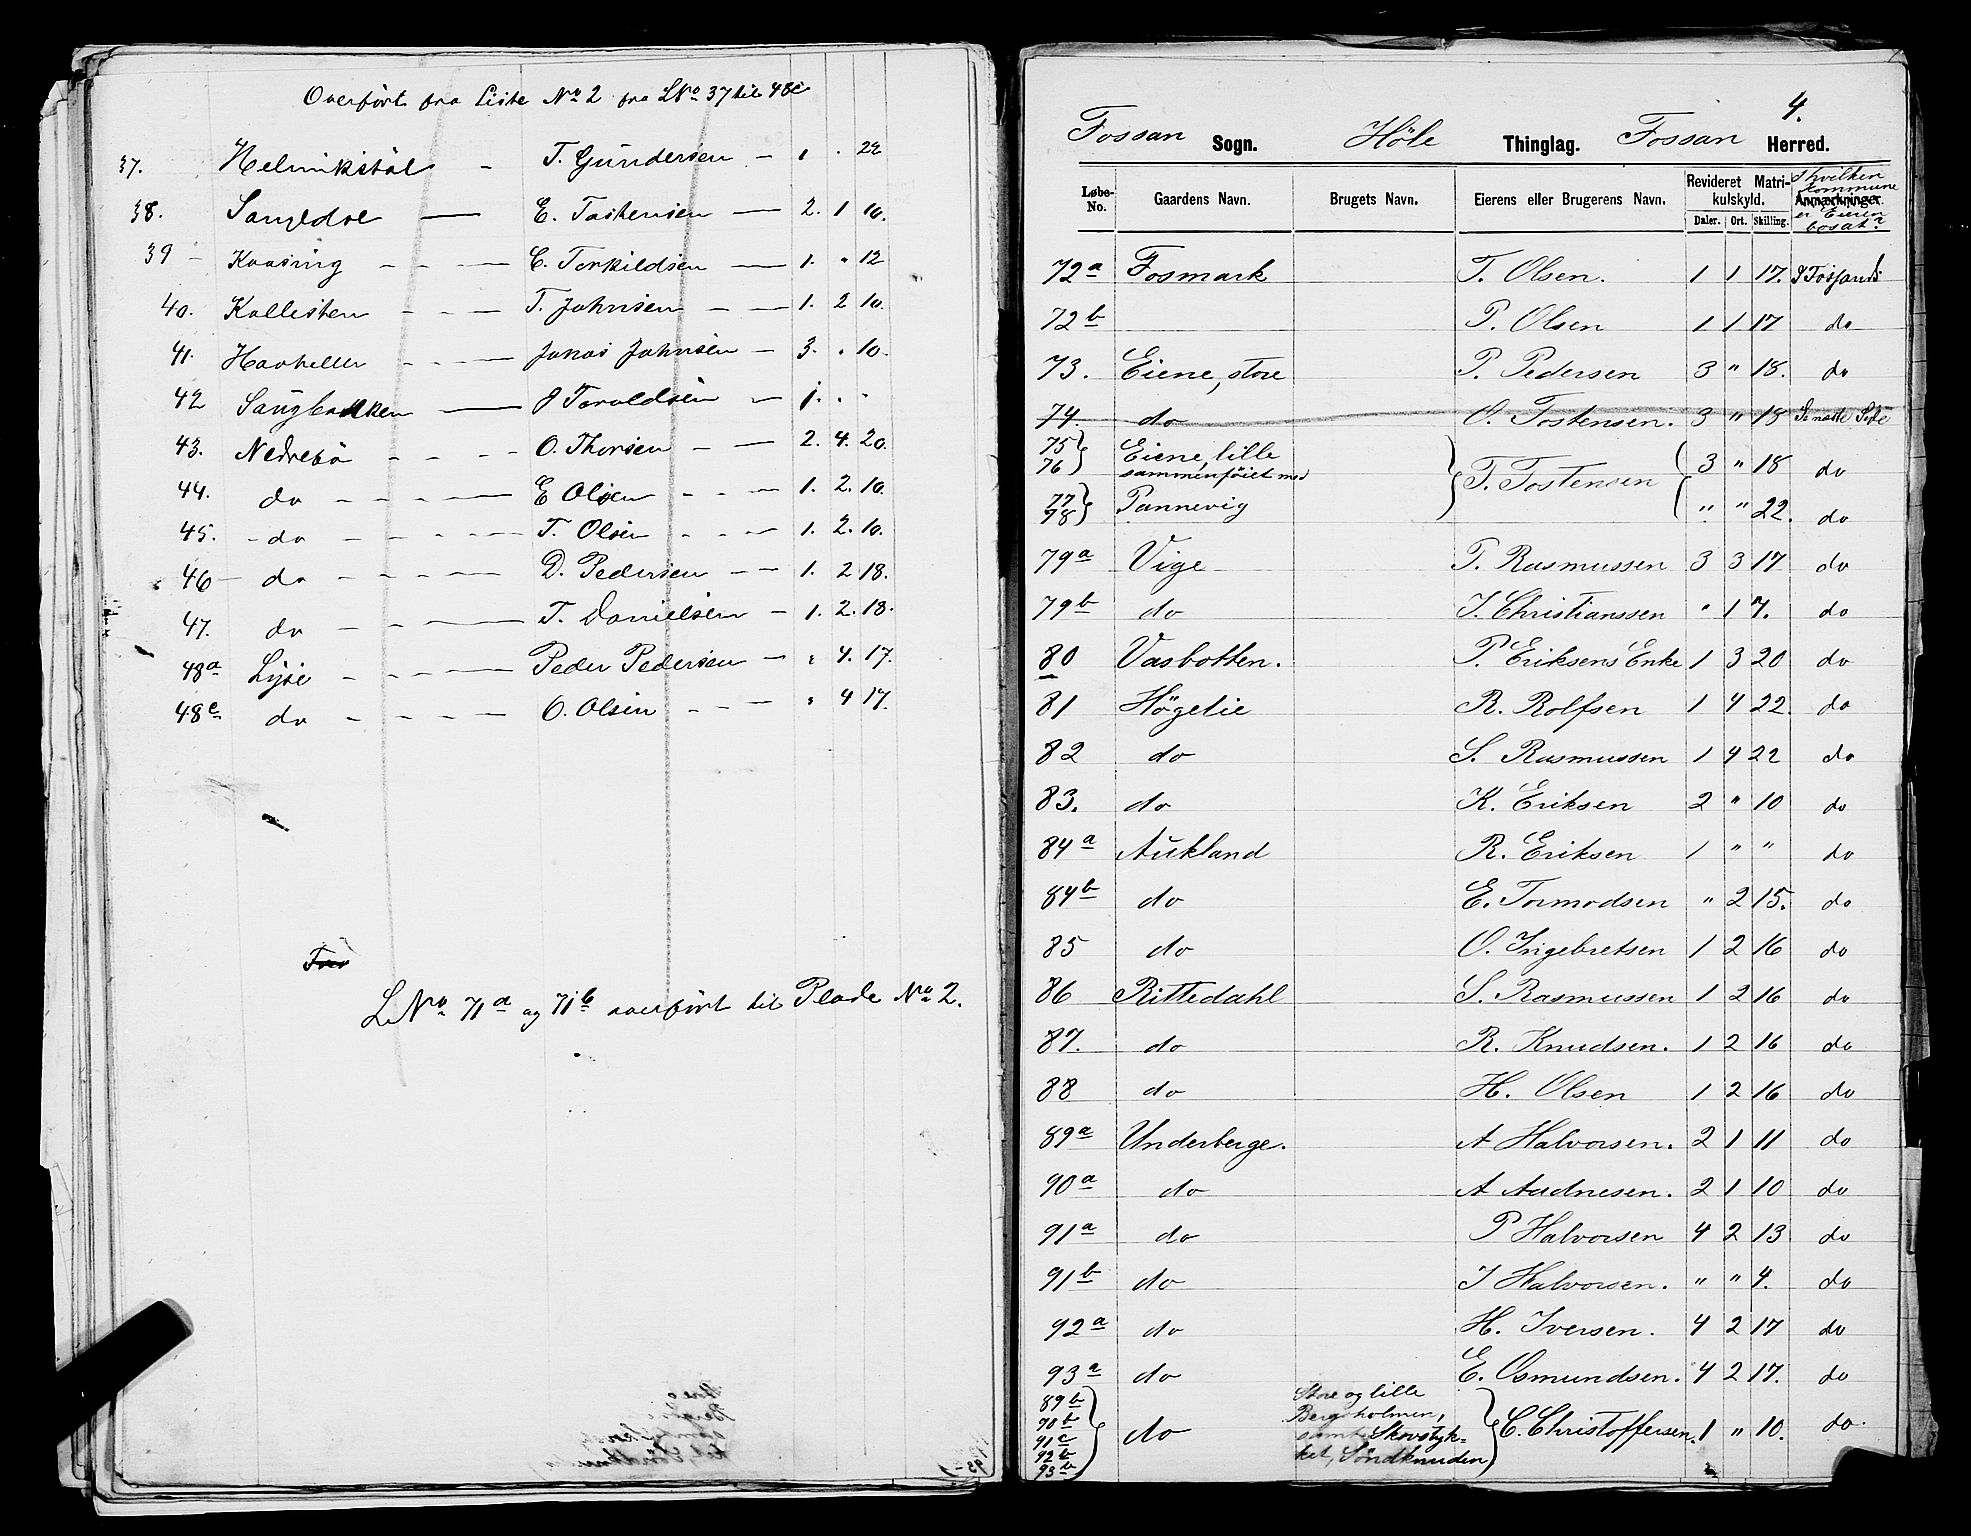 Overført fra Liste No 2 fra LNo 37 til 48c
37. Helmikstøl - T. Gundersen - 1 . 22
38. Sangldse — E. Tostensen — 2. 1 10.
39 - Kaasing - - — C. Torkildsen — 1. " 12
40. Kallesten - - — T. Johnsen - — 1. 2 10.
41. Havheller - - — Jonas Johnsen — 3. " 10.
42 Sangbakken — J Toroldsen — 1. . -
43. Nedrebø - - - - O. Thorsen - — 2. 4. 20.
44. do - - - — E Olsen - - — 1. 2. 10.
45. - do - - - - — T. Olsen - - — 1. 2. 10.
46 - do - - - — D. Pedersen — - 1. 2 18.
47. do - - — T. Danielsen — 1. 2. 18.
48a Lyse - - - — Peder Pedersen — " 4. 17.
48c do - - - — O. Olsen - - — " 4 17.
LNo 71a og 71b overført til Plade No 2.
4.
Fossan Sogn. Høle Thinglag. Fossan Herred.
Løbe-No. Gaardens Navn. Brugets Navn. Eierens eller Brugerens Navn. Revideret Matrikulskyld. Daler. Ort. Skilling. Anmærkninger. I hvilken Kommune er Eieren bosat?
72a Fosmark T. Olsen. 1 1 17. I Fossand
72b P. Olsen 1 1 17 do
73. Eiene, store P. Pedersen 3 " 18. do
74. do O. Tostensen. 3 " 18 Se næste Side
75 76 } Eiene, lille
sammenføiet med } T. Tostensen ( 3 " 18 do
77 78 } Pannevig ( " " 22. do
79a Vige T. Rasmussen 3 3 17 do
79b do J. Christianssen " 1 7. do
80 Vasbotten. P. Eriksens Enke 1 3 20 do
81 Høgelie R. Rolfsen 1 4 22. do
82 do S. Rasmussen 1 4 22 do
83. do K. Eriksen 2 " 10 do
84a Aukland R. Eriksen 1 " " do
84b do E. Tormodsen " 2 15. do
85 do O. Ingebretsen 1 2 16 do
86 Rittedahl S. Rasmussen 1 2 16 do
87. do R. Knudsen. 1 2 16 do
88 do H. Olsen 1 2 16 do
89a Underberge. A Halvorsen. 2 1 11 do
90a do A Audnesen. 2 1 10 do
91a do P Halvorsen 4 2 13 do
91b do J Halvorsen. " " 4. do
92a do H. Iversen. 4 2 17 do
93a do E. Osmundsen. 4 2 17. do
89b 90b 91c 92b 93b } do Store og lille
Bergsholmen,
samt Skovstyk-
ket, Søndknuden } C. Christoffersen. 1 " 10. do.